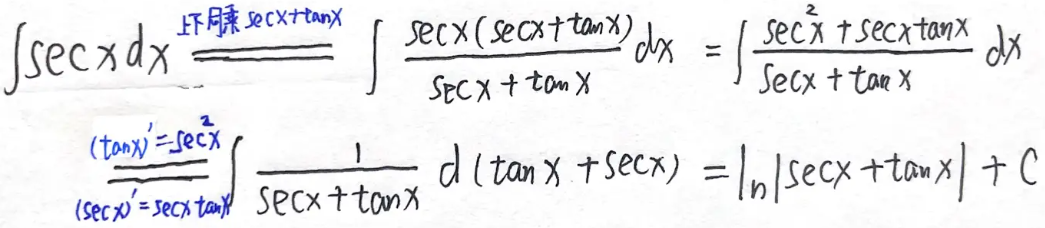 ∫secxdx 上下同乘 secx+tanx ∫ secx(secx+tanx)/(secx+tanx) dx = ∫ (sec²x+secxtanx)/(secx+tanx) dx
(tanx)'=sec²x (secx)'=secxtanx ∫ 1/(secx+tanx) d(tanx+secx) = ln|secx+tanx|+C